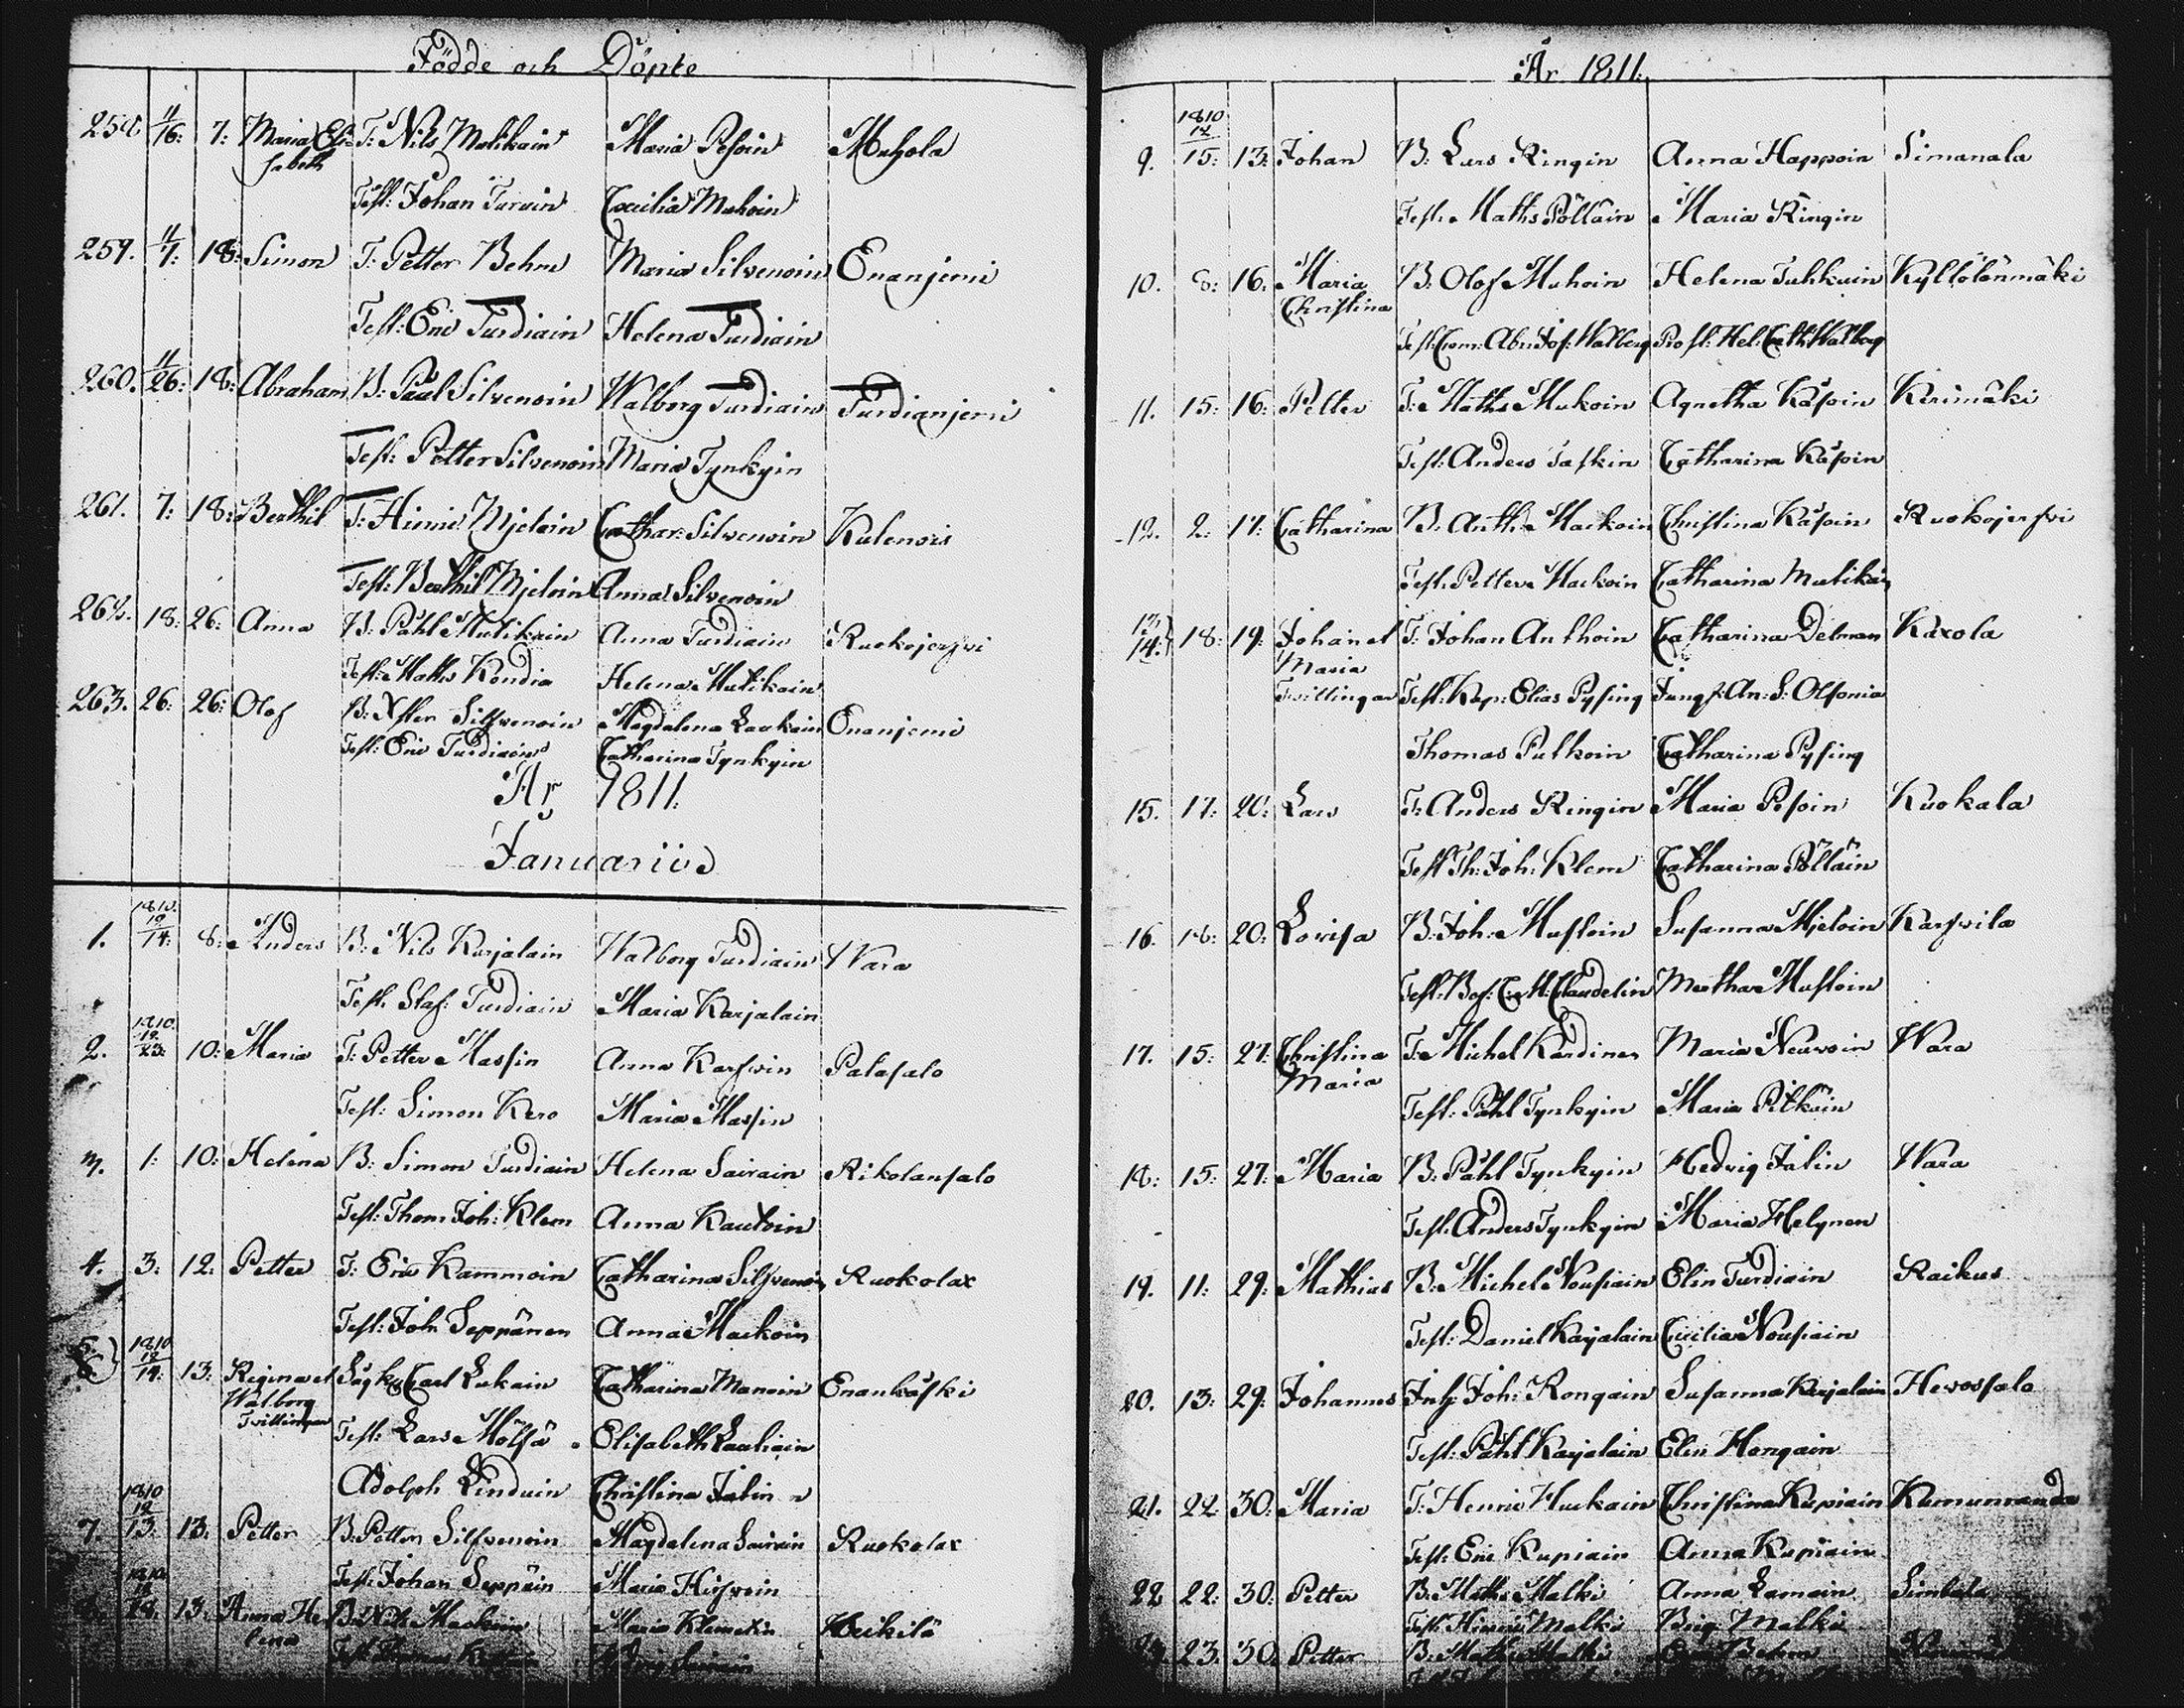 Födde och Döpte
258 11/16: 7: Maria Eli- T: Nils Matikain Maria Pesoin Muhola
sabeth
Test: Johan Turuin Cæcilia Muhoin
259. 11/7: 18: Simon T: Petter Behm Maria Silvenoin Enanjemi
Test: Eric Turdiain Helena Turdiain
260. 11/26: 18: Abraham B: Påal Silvenoin Walborg Turdiain Turdianjemi
Test: Petter Silvenoin Maria Tynkyin
261. 7: 18: Berthil T: Hinric Mjeloin Cathar: Silvenoin Kulenois
Test: Berthil Mjeloin Anna Silvenoin
262. 18: 26: Anna B: Påhl Mutikain Anna Turdiain Ruokojerfvi
Test: Maths Kondia Helena Mutikain
263. 26: 26: Olof B: Silfvenoin Magdalena Laukain Enanjemi
Test: Eric Turdiain Catharina Tynkyin
År 1811.
Januarius
1. 1810. 12/14: 8: Anders B: Nils Karjalain Walborg Turdiain Wara
Test: Staf: Turdiain Maria Karjalain
2. 1810. 12/23: 10: Maria T: Petter Massin Anna Karfvin Palasalo
Test: Simon Kero Maria Massin
3. 1: 10: Helena B: Simon Turdiain Helena Sairain Rikolansalo
Test: Thom: Joh: Klem Anna Kautoin
4. 3: 12. Petter T: Eric Kammoin Catharina Silfvenoin Ruokolax
Test: Joh: Seppänen Anna Mackoin
5. 6} 1810 12/14: 13: Regina et Carl Lukain Catharina Manoin Enankoski
Walborg
Tvillingar
Test: Lars Mölsä Elisabeth Lauliain
Adolph Linduin Christina Jalin
7. 1810 12/13: 13: Petter B: Petter Silfvenoin Magdalena Sairain Ruokolax
Test: Johan Seppäin Maria Hirfvoin
1810 12 13: Anna He- B: Nils Mackoin Maria Klemetin Heikilä
lena
Test: Thomas
År 1811.
9. 1810 12/15: 13: Johan B: Lars Ringin Anna Happoin Simanala
Test: Maths Pölläin Maria Ringin
10. 8: 16: Maria B: Olof Muhoin Helena Tuhkuin Kyllölönmäki
Christina
Test: Com: Abr: Jos: Walberg Prost: Hel: Cath: Walberg
11. 15: 16: Petter T: Maths Mukoin Agnetha Käsoin Kerimäki
Test: Anders Taskin Catharina Käsoin
12. 2: 17: Catharina B: Anth: Mackoin Christina Käsoin Ruokojerfvi
Test: Petter Mackoin Catharina Mutikain
13. 14.} 18: 19: Johan et T: Johan Anthoin Catharina Delman Kaxola
Maria
Tvillingar Test: Kap: Elias Pysing Jungf: An: S: Olsonia
Thomas Pulkoin Catharina Pysing
15. 17: 20: Lars T: Anders Ringin Maria Pesoin Kuokala
Test: Th: Joh: Klem Catharina Pölläin
16. 18: 20: Lovisa B: Joh: Mustoin Susanna Mjeloin Karfvila
Test: Bof: C: M: Claudelin Martha Mustoin
17. 15: 27: Christina T: Michel Kärdinen Maria Neuvoin Wara
Maria
Test: Påhl Tynkyin Maria Pitkäin
18: 15: 27: Maria B: Påhl Tynkyin Hedvig Jalin Wara
Test: Anders Tynkyin Maria Helynen
19. 11: 29: Mathias B: Michel Nousiain Elin Turdiain Raikus
Test: Daniel Karjalain Cecilia Nousiain
20. 13: 29: Johannes Inh: Joh: Rongain Susanna Karjalain Hevossalo
Test: Påhl Karjalain Elin Hongain
21. 22: 30: Maria T: Henric Huckain Christina Kupiain Kumumranda
Test: Eric Kupiain Anna Kupiain
22 22: 30: Petter B: Maths Malki Anna Lamain Simbala
Test: Hinric Malki Brig: Malki
23: 30: Petter B: Maths Malki Behm